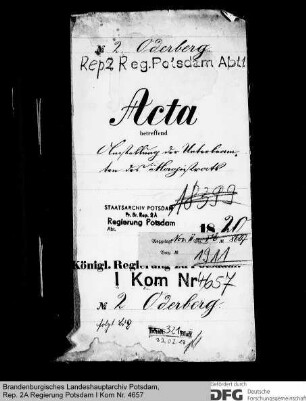 № 2 Oderberg
Rep 2 Reg. Potsdam Abt I
Acta
betreffend
Anstellung der Unterbeam-
ten des Magistrats
18399
STAATSARCHIV POTSDAM
Pr. Br. Rep. 2A
Regierung Potsdam
1820
1911
Königl. Regierung zu Potsdam.
I Kom Nr 4657
№ 2 Oderberg.
321
Brandenburgisches Landeshauptarchiv Potsdam,
Rep. 2A Regierung Potsdam I Kom Nr. 4657
Gefördert durch
DFG Deutsche
Forschungsgemeinschaft